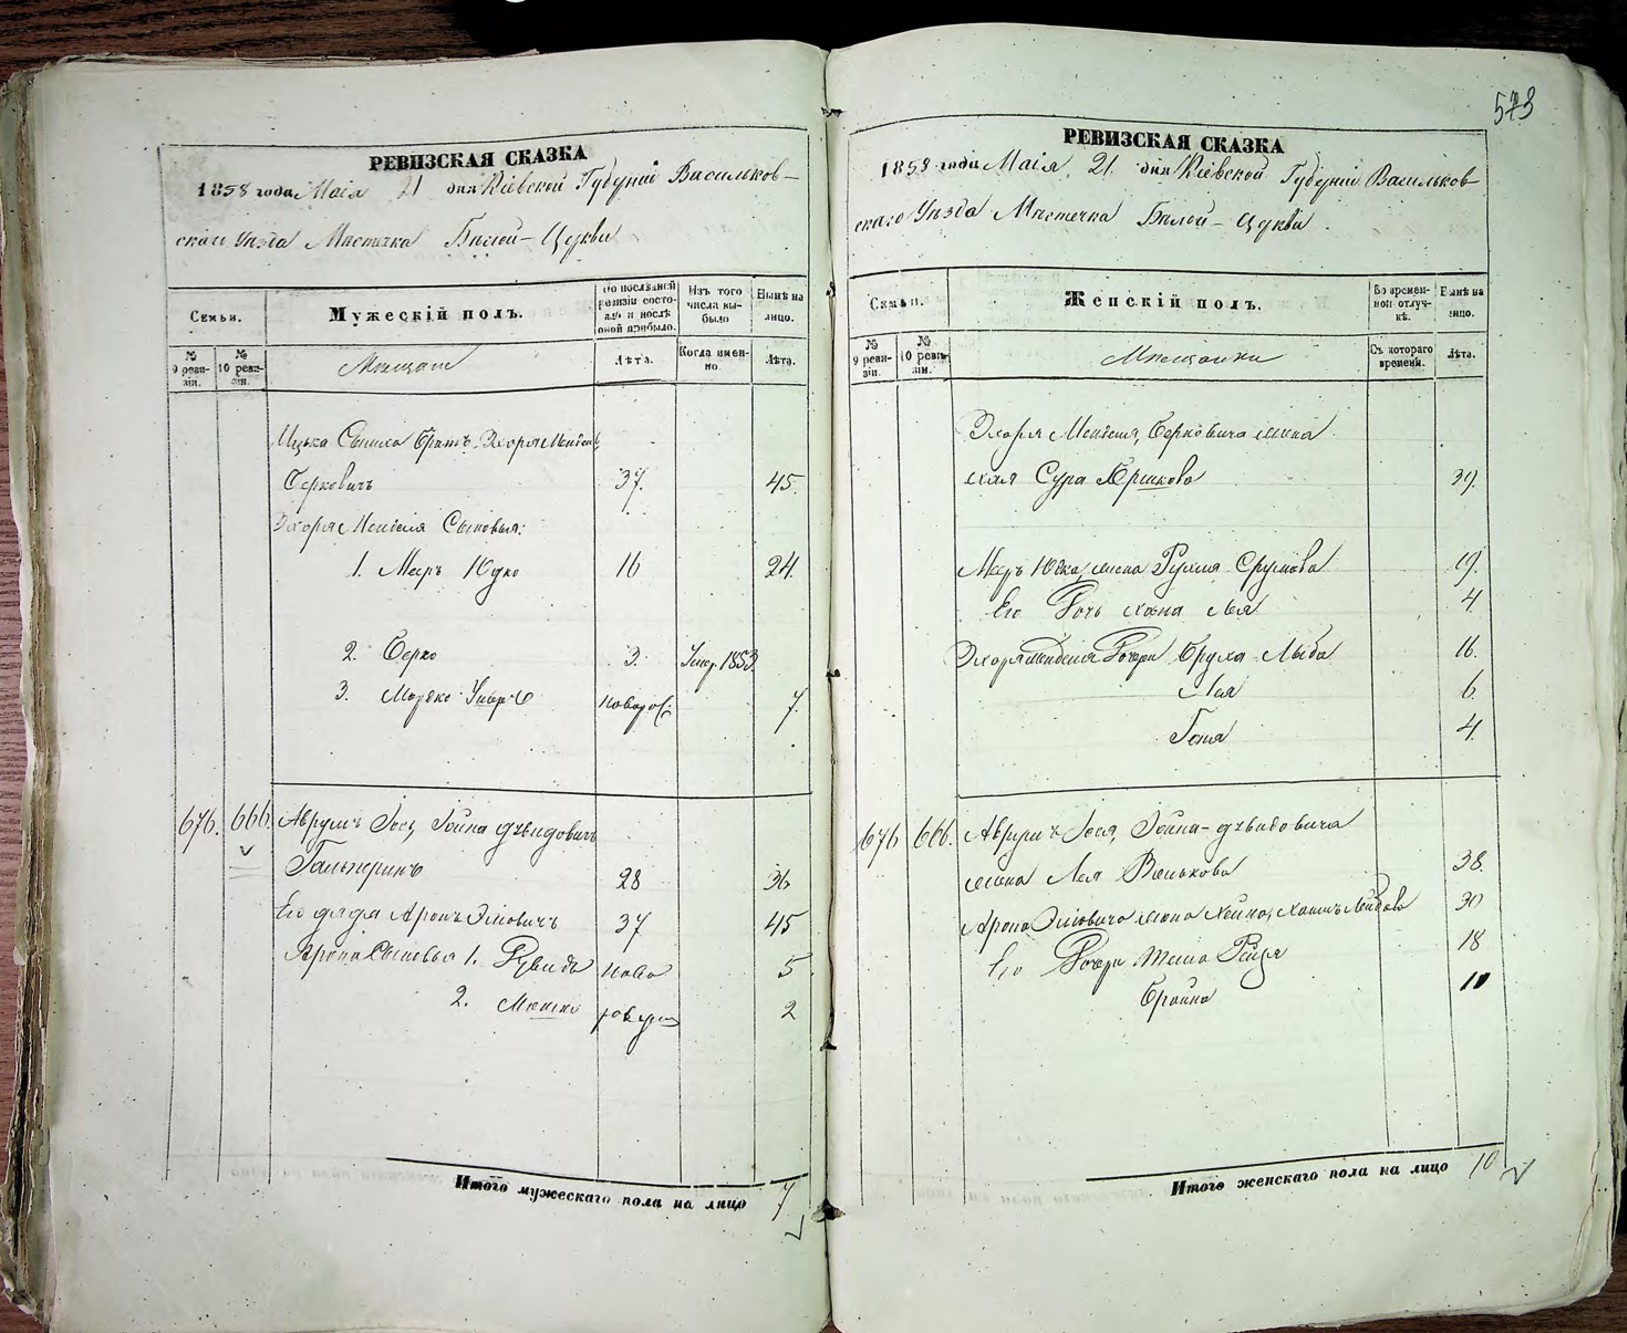 573
РЕВИЗСКАЯ СКАЗКА
1858 года Маія 21 дня Кіевской Губерніи Васильков-
скаго Уѣзда Мѣстечка Бѣлой-Церкви
Семьи.
Мужескій полъ.
По послѣдней ревизіи состояло и послѣ оной прибыло.
Изъ того числа выбыло
Нынѣ на лицо.
№ 9 ревизіи.
№ 10 ревизіи.
Мѣщане
Лѣта.
Когда именно
Лѣта.
Ицька Сымха братъ Эхоря Мендель
Берковичъ 37. 45.
Эхоря Менделя Сыновья:
1. Мееръ Юдко 16 24.
2. Берко 3. Умер. 1853.
3. Мордко 7.
676. 666. Аврумъ Іось, Іойна Дувидовичъ
Гальперинъ 28 36
Его дядя Аронъ Эліовичъ 37 45
Арона Сыновья 1. Дувидъ ново 5
2. Мошко 2
Итого мужескаго пола на лицо 7
РЕВИЗСКАЯ СКАЗКА
1858 года Маія 21 дня Кіевской Губерніи Васильков
скаго Уѣзда Мѣстечка Бѣлой-Церкви.
Семьи.
Женскій полъ.
Во временной отлучкѣ.
Нынѣ на лицо.
№ 9 ревизіи.
№ 10 ревизіи.
Мѣщанки
Съ котораго времени.
Лѣта.
Эхоря Менделя, Берковича жена
Хая Сура Гершкова 39.
Меръ Юдка жена Рухля Срулова 19.
Его Дочь Хана Лея 4
Эхоря Менделя Дочери Бруха Лыба 16.
Лея 6.
Геня 4.
676 666. Аврумъ Іося, Іойна-Дувидовича
жена Лея Волькова 38.
Арона Эліовича жена Хейна 30
Его Дочери Рейзя 18
Бройна 10
Итого женскаго пола на лицо 10